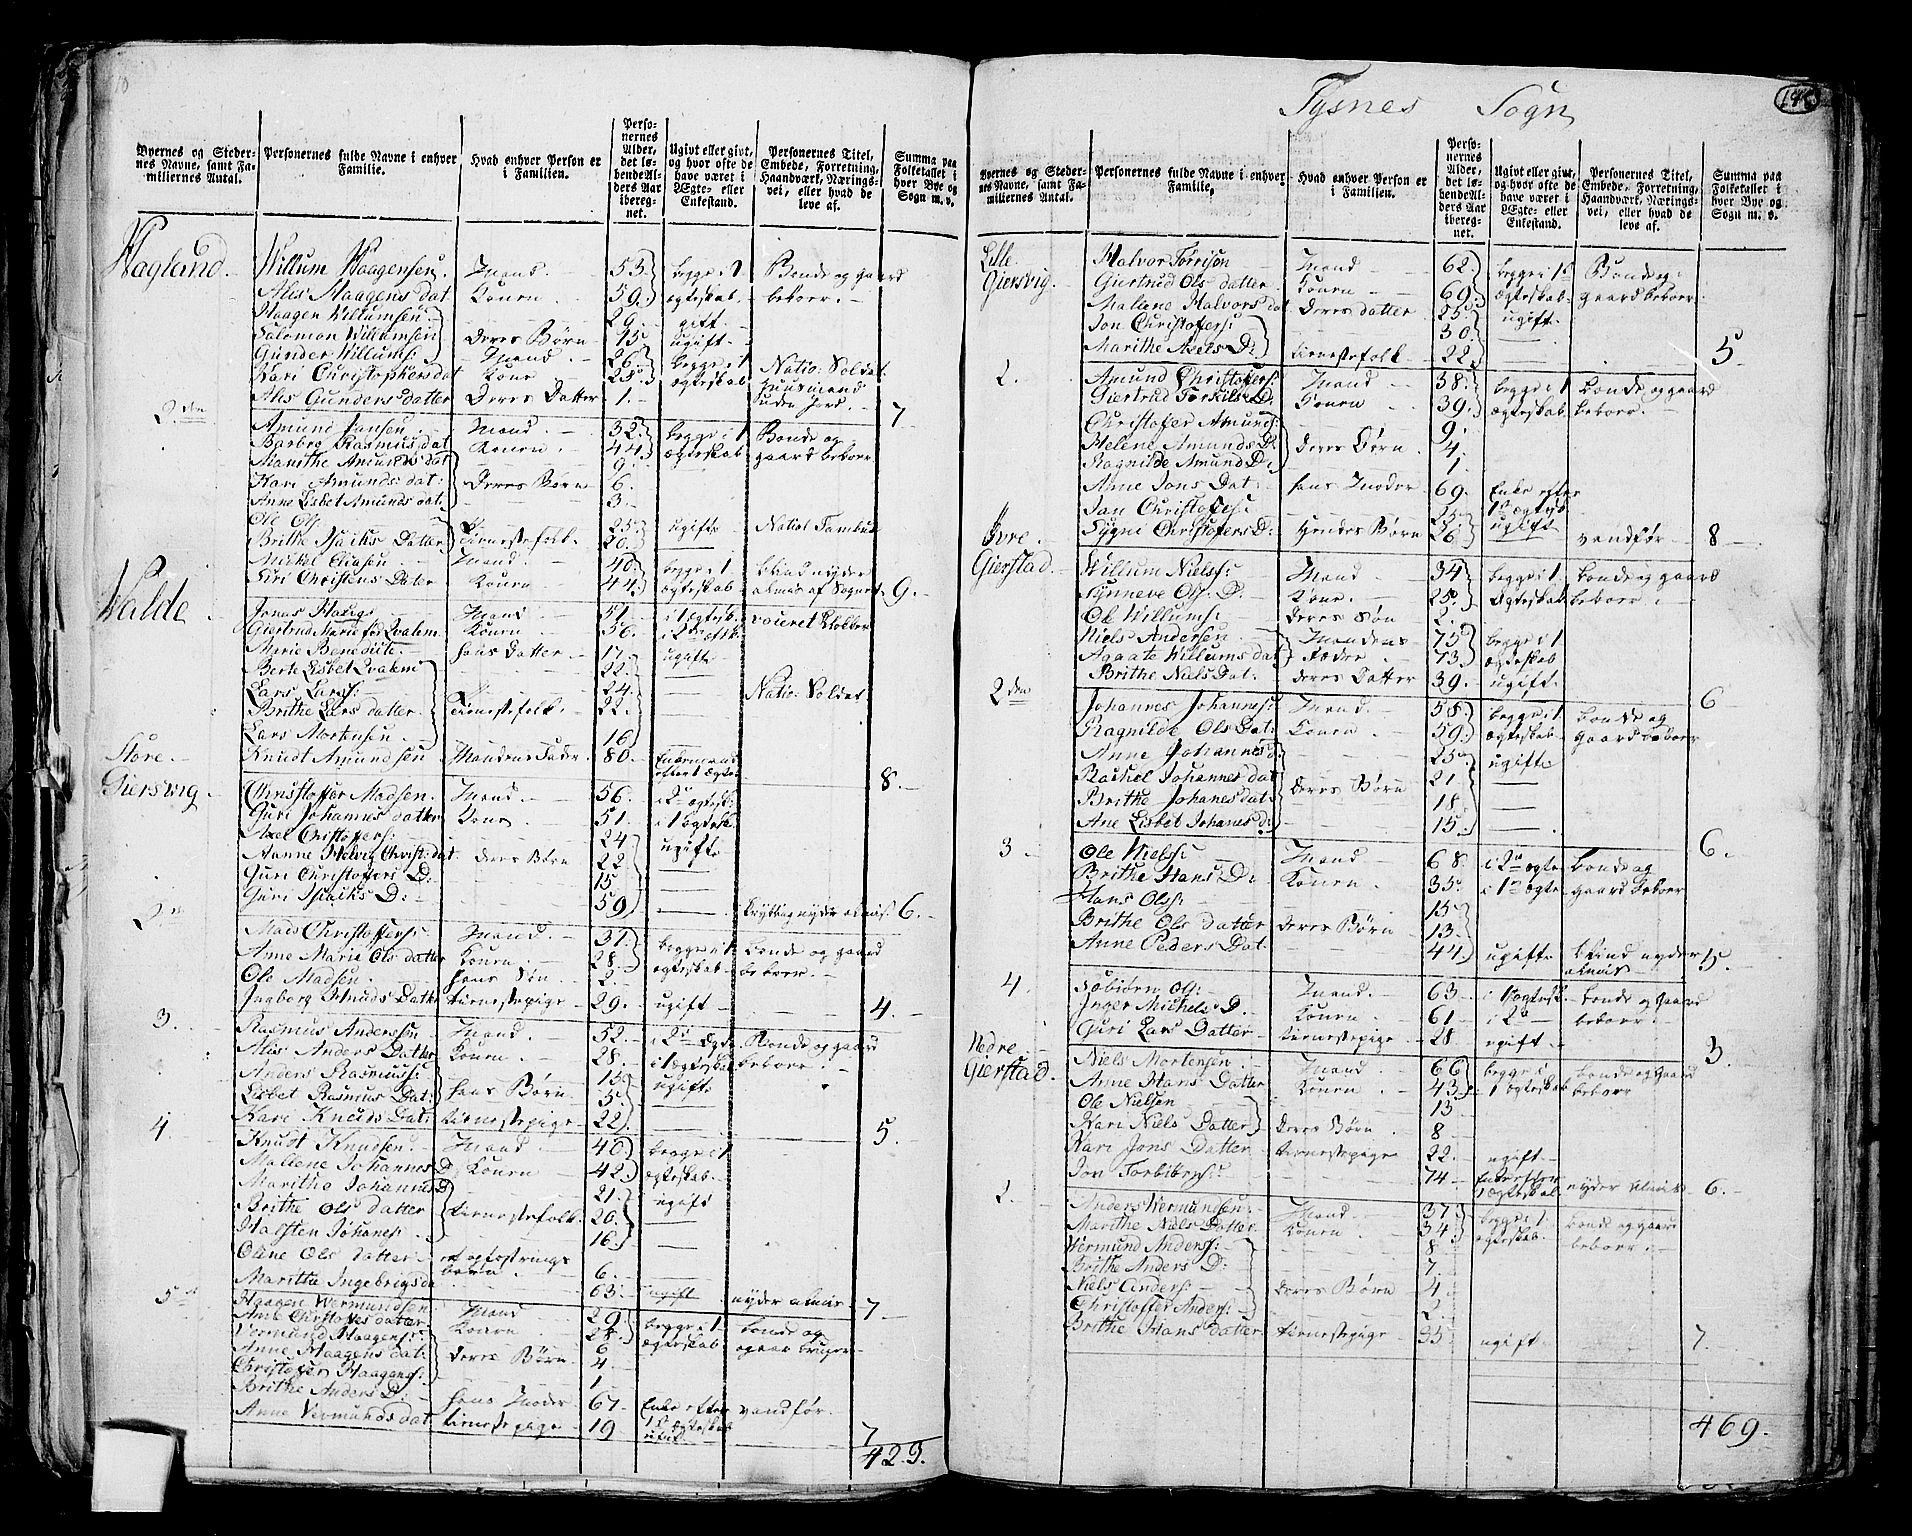 10
Byernes og Steder-
nes Navne, samt Fa-
miliernes Antal.
Personernes fulde Navne i enhver
Familie.
Hvad enhver Person er
i Familien.
Perso-
nernes
Alder,
det lø-
bende Al-
ders Aar
ibereg-
net.
Ugivt eller givt,
og hvor ofte de
have været i
Ægte- eller
Enkestand.
Personernes Titel,
Embede, Forretning,
Haandværk, Nærings-
vei, eller hvad de
leve af.
Summa paa
Folketallet i
hver Bye og
Sogn m. v.
Hagland. Willum Haagensen Mand. 53. begge i 1 Bonde og gaard
Alis Haagens dat Konen 59. ægteskab. beboer.
Haagen Willumsen 29. ugift
Salomon Willumsen Deres Børn 15. ugift
Gunder Willums: Mand. 26. begge i 1 Natio: Soldat
Kari Christophersdat Kone 25. ægteskab huusmand
Alis Gunders datter Deres Datter 1. uden Jord. 7
2den Amund Jansen Mand. 32. begge i 1 Bonde og
Barbro Rasmus dat Konen 44. ægteskab gaard beboer
Marithe Amunds dat 9.
Kari Amunds dat: Deres Børn 6.
Anne Lisbet Amunds dat. 3.
Ole Ols: 25. ugifte Natiol Tambur
Brithe Isaiks Datter Tienestefolk 20.
Mickel Eliasen Mand. 40. begge i 1 blind nyder
Siri Christens Dater Konen 44. ægteskab almis af Sognet 9.
Walde Jonas Haugs Mand 51. i 1 ægtesk.
Giertrud Marie fød Qvalem Konen 56. i 2 ægtesk.
Marie Benedicte hans Datter 17. ugift
Berte Lisbet Qvalem 22.
Lars Larss: 24. Natio Soldat
Brithe Lars datter Tienestefolk. 22.
Lars Mortensen 16.
Knudt Amundsen Mandens Fader 80. Enkemand
efter 1 ægte. 8.
Store
Giersvig Christoffer Madsen Mand. 56. i 2 ægtesk.
Guri Johannes datter Kone 51. i 1 ægtesk.
Axel Christoffers: 24 ugifte
Aanne Helvig Christ: dat deres Børn 22
Guri Christoffers D: 15
Guri Isaiks D: 59 6.
2de Mads Christoffers: Mand. 31. begge i 1 bonde og gaard
Anne Marie Ols datter Konen. 28. ægteskab. beboer.
Ole Madsen hans Søn 2.
Ingborg Knuds Datter tienestepige 29. ugift 4
3. Rasmus Anderssen Mand. 52. Bonde og gaard
Alis Anders Datter Konen. 28. beboer.
Anders Rasmuss: 15 ugift
Lisbet Rasmus Dat: hans Børn 5.
Kari Knuds Dat: tienestepige 22. 5.
4. Knudt Knudsen Mand 40. begge i 1
Mallene Johannes D. Konen 42. ægteskab.
Marithe Johannes D 21. ugift
Brithe Ols datter tienestefolk. 26.
Halsten Johans: 16.
Oline Ols datter et opfostrings
barn 6.
Marithe Ingebrigsda 63. ugift nyder almis 7
5te Haagen Wermundsen Mand 29. begge i 1 bonde og
Anne Christoffes datter Konen 28. ægteskab gaar bruger
Vermund Haagens: 6
Anne Haagens dat: deres Børn 4
Christofer Haagens: 1
Brithe Anders D: hans Moder 67. Enke efter vandfør.
Anne Vermunds dat tienestepige 19 1 ægteskab
ugift 7
423.
Tysnes Sogn
146
Byernes og Steder-
nes Navne, samt Fa-
miliernes Antal.
Personernes fulde Navne i enhver
Familie.
Hvad enhver Person er
i Familien.
Perso-
nernes
Alder,
det lø-
bende Al-
ders Aar
iberég-
net.
Ugivt eller givt,
og hvor ofte de
have været i
Ægte- eller
Enkestand.
Personernes Titel,
Embede, Forretning,
Haandværk, Nærings-
vei, eller hvad de
leve af.
Summa paa
Folketallet i
hver Bye og
Sogn m. v.
Lille Halvor Torrison Mand 62. begge i 1 Bonde og
Giersvig. Giertrud Ols datter Konen 69. ægteskab gaard beboer
Malene Halvors dat Deres datter 25 ugift
Jon Christoffers: 30.
Marithe Axels D: tienestefolk 22. 5
2. Amund Christofers: Mand 38. begge i 1 bonde og gaard
Giertrud Torkils D. Konen 39. ægteskab. beboer.
Christofer Amunds: 9.
Helene Amunds D: deres Børn 4.
Ragnilde Amund D: 1
Anne Jons Dat hans Moder 69. Enke efter
Jan Christofes: 25. 1 ægtesk
Sygni Christofers D: hendes Børn 26 ugift vandfør 8
Øvre
Gierstad Willum Niels: Mand 34 begge i 1 bonde og gaard
Synneve Ols: D: Kone 25 Ægteskab. beboer.
Ole Willums: deres Søn 2.
Niels Andersen Mandens 75 begge i 1
Agaate Willums dat Fader 73. ægteskab
Brithe Niels Dat: deres Datter 39. ugift. 6
2den Johannes Johannes: Mand. 58. begge i 1 bonde og
Ragnilde Ols Dat. Konen 59. ægteskab gaard beboer
Anne Johannes D 25 ugifte
Rachel Johannes dat 21
Brithe Johanes dat: deres Børn 18
Ane Lisbet Johanes d: 15. 6.
3 Ole Niels: Mand 68. i 2 ægte bonde og
Brithe Hans D: Konen 35. i 1 ægte gaard beboer
Hans Ols: 15
Brithe Ols datter deres Børn 13.
Anne Peders Dat. 44. ugifte blind nyder
almis 5.
4. Tobiørn Ols: Mand. 63 i 1 ægtesk. bonde og gaard
Inger Michels D. Konen 61 i 2 beboer
Guri Lars Datter tienestepige 28 ugift 3.
Nedre
Gierstad. Niels Mortensen Mand 66 begge i bonde og gaard
Anne Hans Datter Konen 43. 1 ægteskab beboer
Ole Nielsen 13
Kari Niels Datter deres Børn 8
Kari Jons Datter tienestepige 22. ugift
Jon Torbiørs: 74 nyder almis 6.
2. Anders Wermundsen Mand. 37. begge i 1 bonde og gaard
Marithe Niels Datter Konen 34. ægteskab. beboer.
Wermund Anders: 8
Brithe Anders D: 7
Niels Anders: deres Børn 4.
Christoffer Anders: 2.
Brithe Hans datter tienestepige 35 ugift 7.
469.